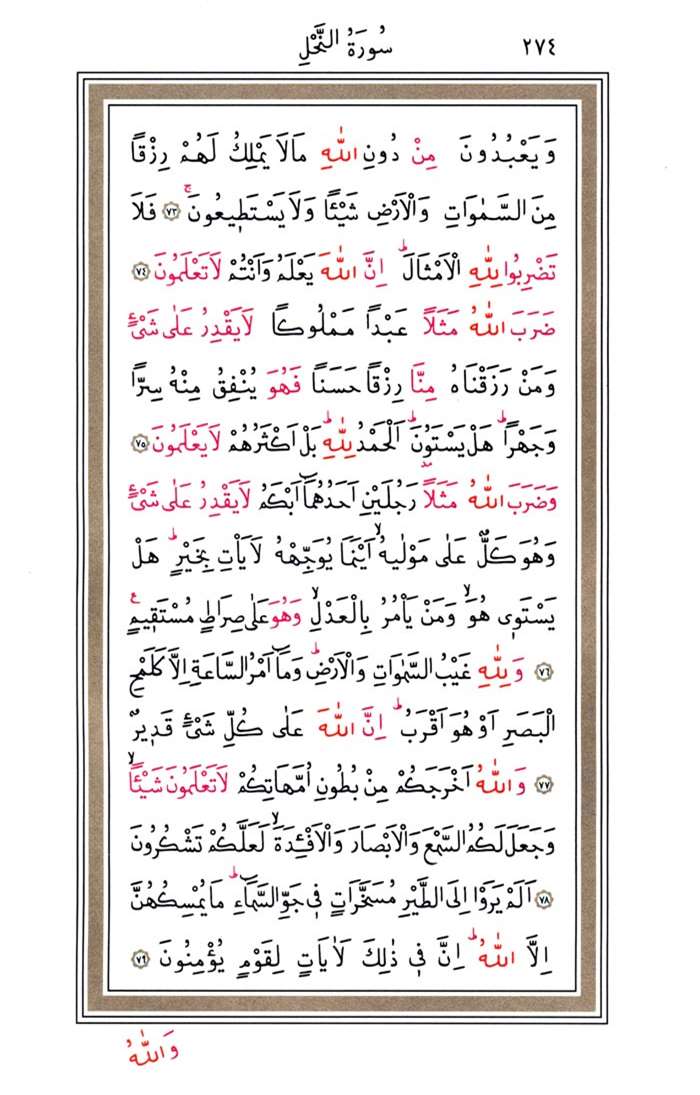 ٢٧٤ سُورَةُ النَّحْلِ
وَيَعْبُدُونَ مِنْ دُونِ اللّٰهِ مَالَا يَمْلِكُ لَهُمْ رِزْقًا
مِنَ السَّمٰوَاتِ وَالْاَرْضِ شَيْـًٔا وَلَا يَسْتَط۪يعُونَۚ ﴿٧٣﴾ فَلَا
تَضْرِبُوا لِلّٰهِ الْاَمْثَالَۜ اِنَّ اللّٰهَ يَعْلَمُ وَاَنْتُمْ لَا تَعْلَمُونَ ﴿٧٤﴾
ضَرَبَ اللّٰهُ مَثَلًا عَبْدًا مَمْلُوكًا لَا يَقْدِرُ عَلٰى شَيْءٍ
وَمَنْ رَزَقْنَاهُ مِنَّا رِزْقًا حَسَنًا فَهُوَ يُنْفِقُ مِنْهُ سِرًّا
وَجَهْرًاۜ هَلْ يَسْتَوُ۫نَۜ اَلْحَمْدُ لِلّٰهِۜ بَلْ اَكْثَرُهُمْ لَا يَعْلَمُونَ ﴿٧٥﴾
وَضَرَبَ اللّٰهُ مَثَلًا رَجُلَيْنِ اَحَدُهُمَٓا اَبْكَمُ لَا يَقْدِرُ عَلٰى شَيْءٍ
وَهُوَ كَلٌّ عَلٰى مَوْلٰيهُۙ اَيْنَمَا يُوَجِّهْهُ لَا يَأْتِ بِخَيْرٍۜ هَلْ
يَسْتَو۪ي هُوَۙ وَمَنْ يَأْمُرُ بِالْعَدْلِۙ وَهُوَ عَلٰى صِرَاطٍ مُسْتَق۪يمٍ۟
﴿٧٦﴾ وَلِلّٰهِ غَيْبُ السَّمٰوَاتِ وَالْاَرْضِۜ وَمَٓا اَمْرُ السَّاعَةِ اِلَّا كَلَمْحِ
الْبَصَرِ اَوْ هُوَ اَقْرَبُۜ اِنَّ اللّٰهَ عَلٰى كُلِّ شَيْءٍ قَد۪يرٌ
﴿٧٧﴾ وَاللّٰهُ اَخْرَجَكُمْ مِنْ بُطُونِ اُمَّهَاتِكُمْ لَا تَعْلَمُونَ شَيْـًٔاۙ
وَجَعَلَ لَكُمُ السَّمْعَ وَالْاَبْصَارَ وَالْاَفْـِٔدَةَۙ لَعَلَّكُمْ تَشْكُرُونَ
﴿٧٨﴾ اَلَمْ يَرَوْا اِلَى الطَّيْرِ مُسَخَّرَاتٍ ف۪ي جَوِّ السَّمَٓاءِۜ مَا يُمْسِكُهُنَّ
اِلَّا اللّٰهُۜ اِنَّ ف۪ي ذٰلِكَ لَاٰيَاتٍ لِقَوْمٍ يُؤْمِنُونَ ﴿٧٩﴾
وَاللّٰهُ